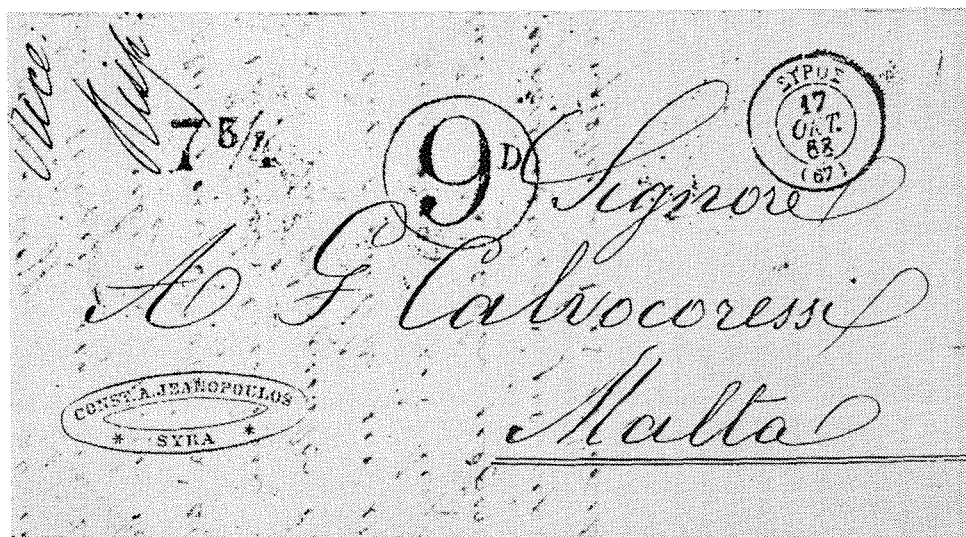 7 5/4
9 D
ΣΥΡΟΣ
17
ΟΚΤ.
62
(67)
Signore
A G Calvocoressi
Malta
CONST. A. JEANOPOULOS
* SYRA *